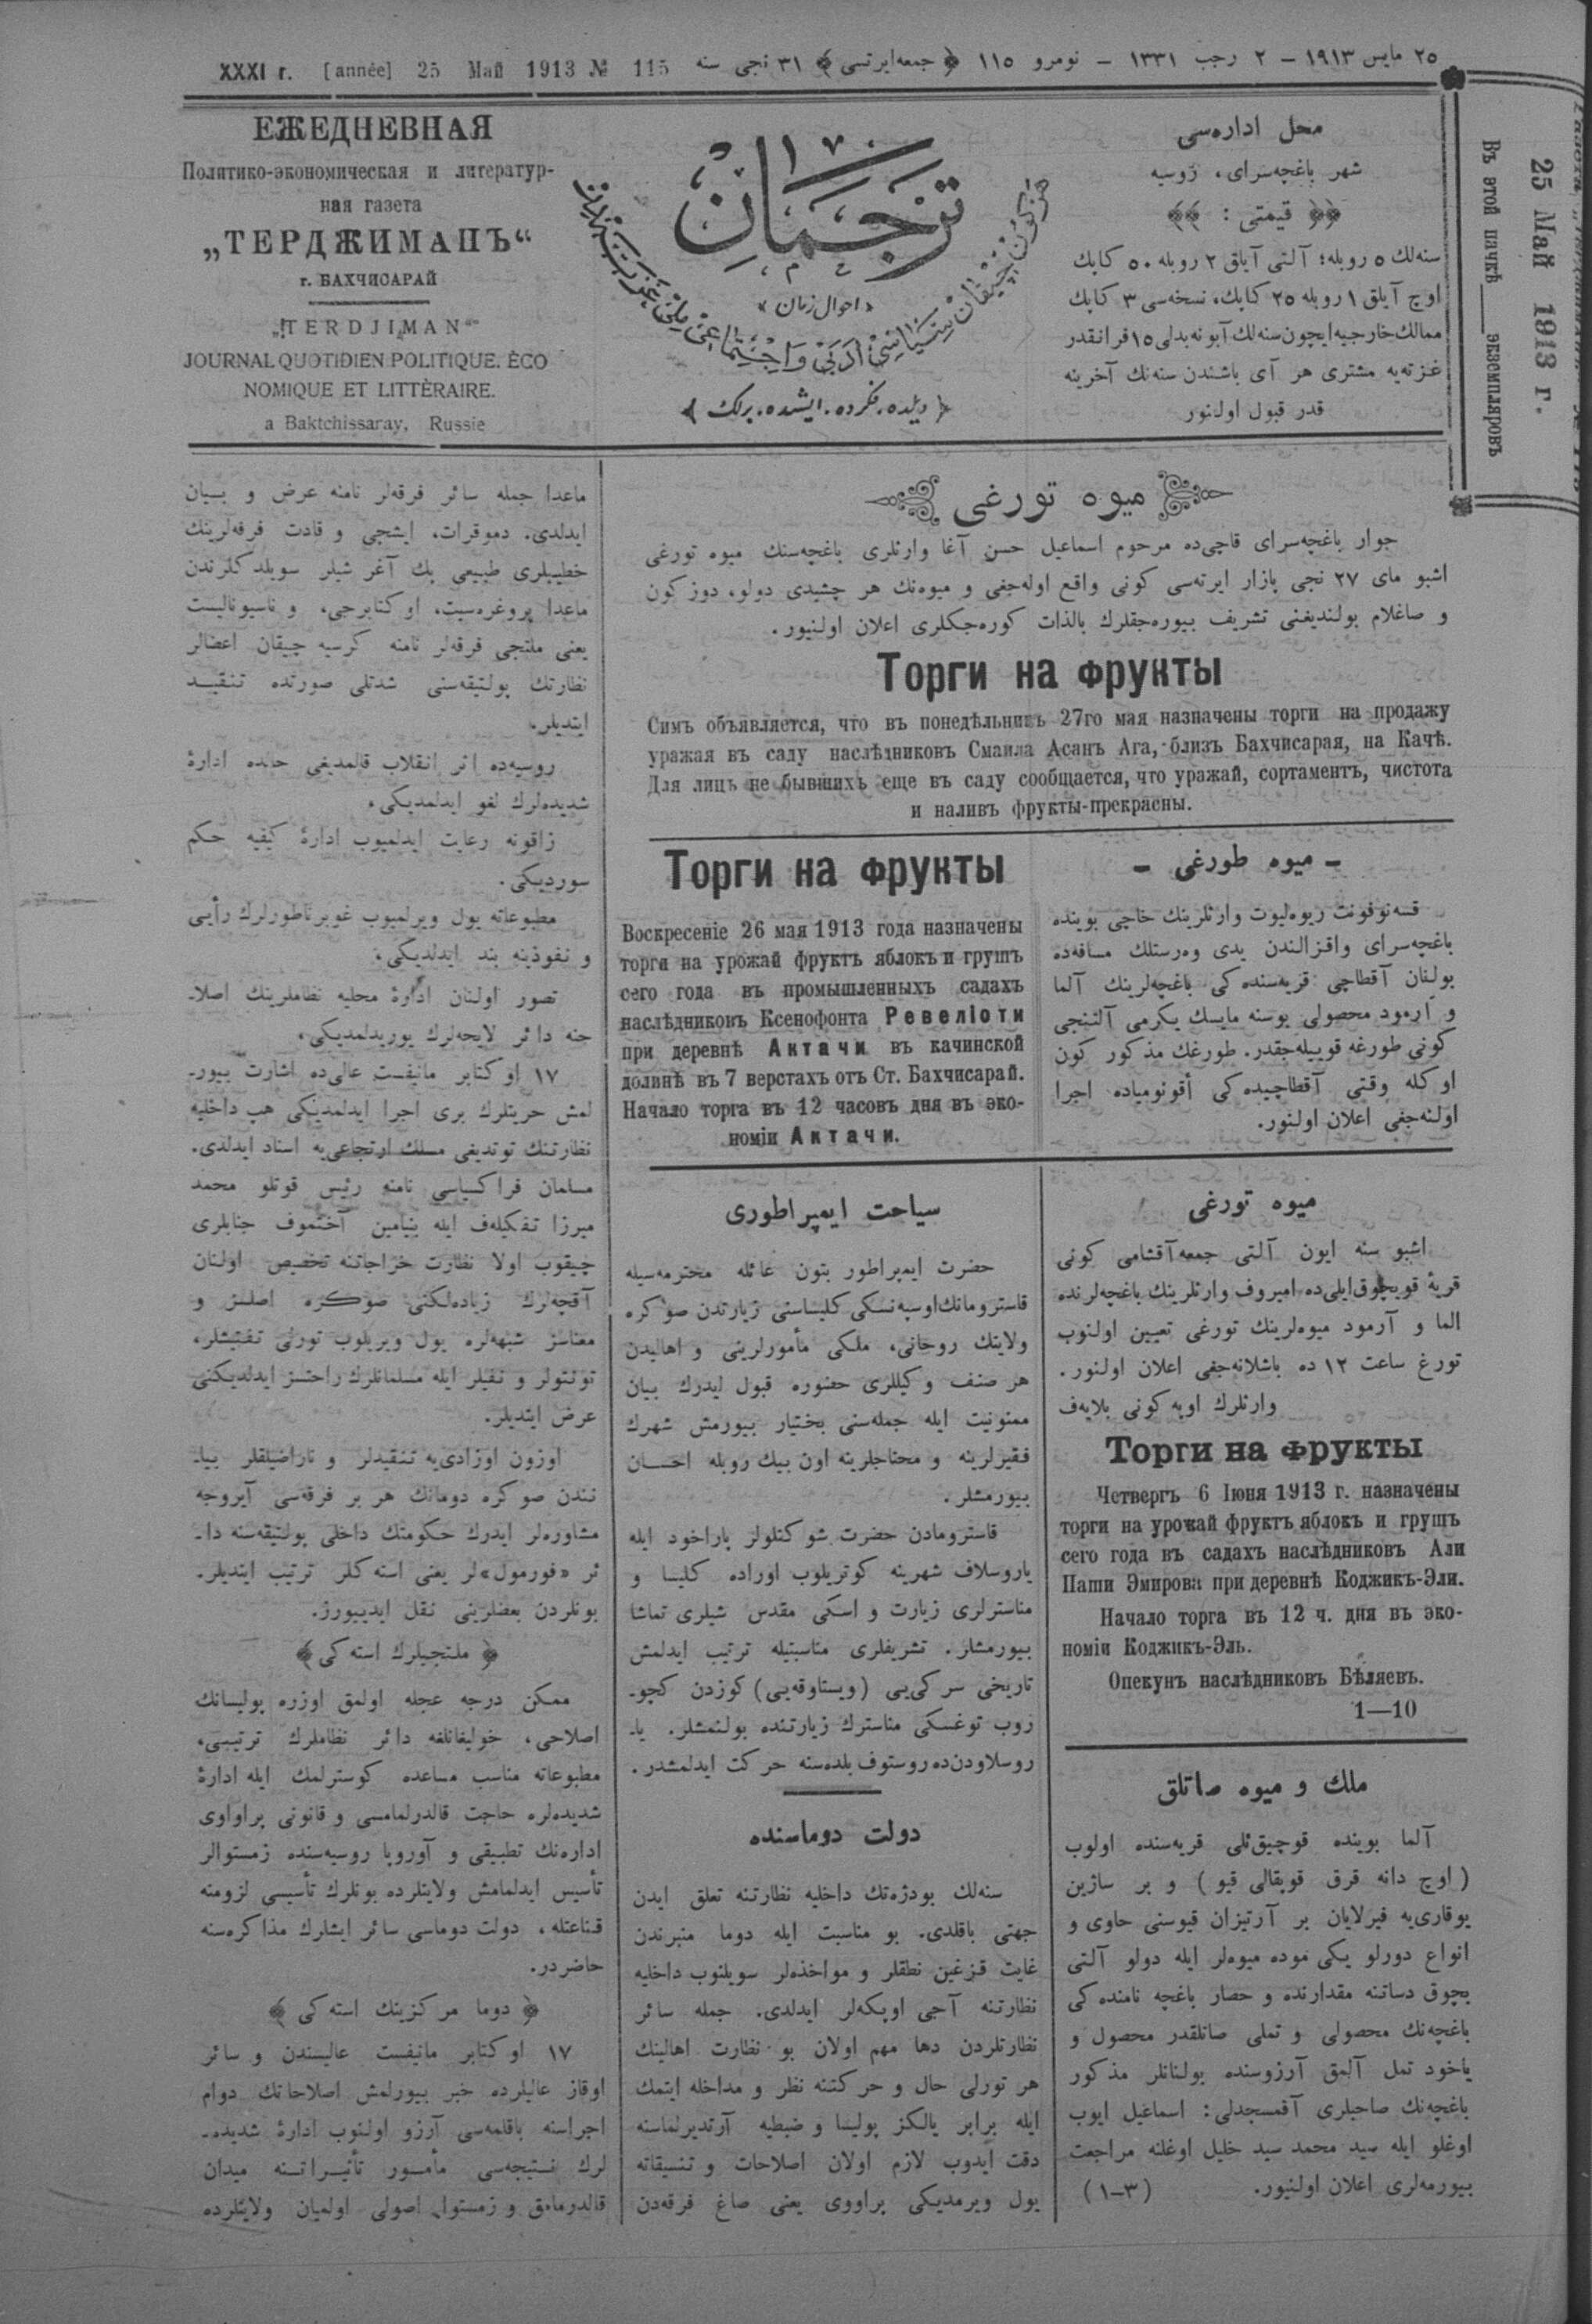 XXXI г. [année] 25 Май 1913 № 115
٢٥ مایس ١٩١٣ – ٢ رجب ١٣٣١ – نومرو ١١٥ ﴿ جمعه‌ایرتسی ﴾ ٣١ نجی سنه
ЕЖЕДНЕВНАЯ
Политико-экономическая и литератур-
ная газета
„ТЕРДЖИМАНЪ“
г. БАХЧИСАРАЙ
„TERDJIMAN“
JOURNAL QUOTIDIEN POLITIQUE. ÈCO
NOMIQUE ET LITTÈRAIRE.
a Baktchissaray, Russie
ترجمان
«احوال زمان»
﴿ دیلده، فکرده، ایشده، برلك ﴾
محل اداره‌سی
شهر باغچه‌سرای، روسیه
﴿﴿ قیمتی : ﴾﴾
سنه‌لك ٥ روبله؛ آلتی آیلق ٢ روبله ٥٠ کاپك
اوچ آیلق ١ روبله ٢٥ کاپك، نسخه‌سی ٣ کاپك
ممالك خارجیه ایچون سنه‌لك آبونه بدلی ١٥ فرانقدر
غزته‌یه مشتری هر آی باشندن سنه‌نك آخرینه
قدر قبول اولنور
25 Май 1913 г.
Въ этой пачкѣ ____ экземпляровъ
میوه تورغی
جوار باغچه‌سرای قاچی‌ده مرحوم اسماعیل حسن آغا وارثلری باغچه‌سنك میوه تورغی
اشبو مای ٢٧ نجی بازار ایرته‌سی کونی واقع اوله‌جغی و میوه‌نك هر چشیدی دولو، دوزکون
و صاغلام بولندیغنی تشریف بیوره‌جقلرك بالذات کوره‌جکلری اعلان اولنیور.
Торги на фрукты
Симъ объявляется, что въ понедѣльникъ 27го мая назначены торги на продажу
уражая въ саду наслѣдниковъ Смаила Асанъ Ага, близъ Бахчисарая, на Качѣ.
Для лицъ не бывшихъ еще въ саду сообщается, что уражай, сортаментъ, чистота
и наливъ фрукты-прекрасны.
– میوه طورغی –
قسه‌نوفونت ریوه‌لیوت وارثلرینك خاچی بوینده
باغچه‌سرای واقزالندن یدی وه‌رستلك مسافه‌ده
بولنان آقطاچی قریه‌سنده‌کی باغچه‌لرینك آلما
و آرمود محصولی بوسنه مایسك یکرمی آلتنجی
کونی طورغه قوییله‌جقدر. طورغك مذکور کون
اوکله وقتی آقطاچیده‌کی أقونومیاده اجرا
اولنه‌جغی اعلان اولنور.
Торги на фрукты
Воскресеніе 26 мая 1913 года назначены
торги на урожай фруктъ яблокъ и грушъ
сего года въ промышленныхъ садахъ
наслѣдниковъ Ксенофонта Ревеліоти
при деревнѣ Актачи въ качинской
долинѣ въ 7 верстахъ отъ Ст. Бахчисарай.
Начало торга въ 12 часовъ дня въ эко-
номіи Актачи.
میوه تورغی
اشبو سنه ایون آلتی جمعه‌آقشامی کونی
قریهٔ قویچوق‌ایلی‌ده امیروف وارثلرینك باغچه‌لرنده
الما و آرمود میوه‌لرینك تورغی تعیین اولنوب
تورغ ساعت ١٢ ده باشلانه‌جغی اعلان اولنور.
وارثلرك اوپه‌کونی بلایه‌ف
Торги на фрукты
Четвергъ 6 Іюня 1913 г. назначены
торги на урожай фруктъ яблокъ и грушъ
сего года въ садахъ наслѣдниковъ Али
Паши Эмирова при деревнѣ Коджикъ-Эли.
Начало торга въ 12 ч. дня въ эко-
номіи Коджикъ-Эль.
Опекунъ наслѣдниковъ Бѣляевъ.
1—10
ملك و میوه صاتلق
آلما بوینده قوچیق‌ئلی قریه‌سنده اولوب
( اوچ دانه قرق قوبقالی قیو ) و بر ساژین
یوقاری‌یه فیرلایان بر آرتیزان قیوسنی حاوی و
انواع دورلو یکی موده میوه‌لر ایله دولو آلتی
بچوق دساتنه مقدارنده و حصار باغچه نامنده‌کی
باغچه‌نك محصولی و تملی صاتلقدر محصول و
یاخود تمل آلمق آرزوسنده بولنانلر مذکور
باغچه‌نك صاحبلری آقمسجدلی: اسماعیل ایوب
اوغلو ایله سید محمد سید خلیل اوغلنه مراجعت
بیورمه‌لری اعلان اولنیور. (٣–١)
سیاحت ایمپراطوری
حضرت ایمپراطور بتون عائله محترمه‌سیله
قاسترومانك‌اوسپه‌نسکی کلیساسنی زیارتدن صوکره
ولایتك روحانی، ملکی مأمورلرینی و اهالیدن
هر صنف وکیللری حضوره قبول ایدرك بیان
ممنونیت ایله جمله‌سنی بختیار بیورمش شهرك
فقیرلرینه و محتاجلرینه اون بیك روبله احسان
بیورمشلر.
قاسترومادن حضرت شوکتلولر پاراخود ایله
یاروسلاف شهرینه کوتریلوب اوراده کلیسا و
مناسترلری زیارت و اسکی مقدس شیلری تماشا
بیورمشلر. تشریفلری مناسبتیله ترتیب ایدلمش
تاریخی سرکی‌یی (ویستاوقه‌یی) کوزدن کچو-
روب توغسکی مناسترك زیارتنده بولنمشلر. یا-
روسلاودن‌ده روستوف بلده‌سنه حرکت ایدلمشدر.
دولت دوماسنده
سنه‌لك بودژه‌نك داخلیه نظارتنه تعلق ایدن
جهتی باقلدی. بو مناسبت ایله دوما منبرندن
غایت قزغین نطقلر و مواخذه‌لر سویلنوب داخلیه
نظارتنه آجی اوپکه‌لر ایدلدی. جمله سائر
نظارتلردن دها مهم اولان بو نظارت اهالینك
هر تورلی حال و حرکتنه نظر و مداخله ایتمك
ایله برابر یالکز پولیسا و ضبطیه آرتدیرلماسنه
دقت ایدوب لازم اولان اصلاحات و تنسیقاته
یول ویرمدیکی پراووی یعنی صاغ فرقه‌دن
ماعدا جمله سائر فرقه‌لر نامنه عرض و بیان
ایدلدی. دموقرات، ایشجی و قادت فرقه‌لرینك
خطیبلری طبیعی پك آغر شیلر سویلدکلرندن
ماعدا پروغره‌سیت، اوکتابرجی، و ناسیونالیست
یعنی ملتجی فرقه‌لر نامنه کرسیه چیقان اعضالر
نظارتك پولتیقه‌سنی شدتلی صورتده تنقید
ایتدیلر.
روسیه‌ده اثر انقلاب قالمدیغی حالده ادارهٔ
شدیده‌لرك لغو ایدلمدیکی،
زاقونه رعایت ایدلمیوب ادارهٔ کیفیه حکم
سوردیکی.
مطبوعاته یول ویرلمیوب غوبرناطورلرك رأیی
و نفوذینه بند ایدلدیکی،
تصور اولنان ادارهٔ محلیه نظاملرینك اصلا-
حنه دائر لایحه‌لرك یوریدلمدیکی،
١٧ اوکتابر مانیفست عالی‌ده اشارت بیور-
لمش حریتلرك بری اجرا ایدلمدیکی هپ داخلیه
نظارتنك توتدیغی مسلك ارتجاعی‌یه اسناد ایدلدی.
مسلمان فراکسیاسی نامنه رئیس قوتلو محمد
میرزا تفکیله‌ف ایله بنیامین آختموف جنابلری
چیقوب اولا نظارت خراجاتنه تخصیص اولنان
آقچه‌لرك زیاده‌لکنی صوکره اصلسز و
معناسز شبهه‌لره یول ویریلوب تورلی تفتیشلر،
توتتولر و نفیلر ایله مسلمانلرك راحتسز ایدلدیکنی
عرض ایتدیلر.
اوزون اوزادی‌یه تنقیدلر و ناراضیلقلر بیا-
نندن صوکره دومانك هر بر فرقه‌سی آیروجه
مشاوره‌لر ایدرك حکومتك داخلی پولتیقه‌سنه دا-
ئر «فورمول»لر یعنی استه‌کلر ترتیب ایتدیلر.
بونلردن بعضلرینی نقل ایدییورز.
﴿ ملتجیلرك استه‌کی ﴾
ممکن درجه عجله اولمق اوزره پولیسانك
اصلاحی، خولیغانلغه دائر نظاملرك ترتیبی،
مطبوعاته مناسب مساعده کوسترلمك ایله ادارهٔ
شدیده‌لره حاجت قالدرلمامسی و قانونی پراواوی
اداره‌نك تطبیقی و آوروپا روسیه‌سنده زمستوالر
تأسیس ایدلمامش ولایتلرده بونلرك تأسیسی لزومنه
قناعتله، دولت دوماسی سائر ایشلرك مذاکره‌سنه
حاضردر.
﴿ دوما مرکزینك استه‌کی ﴾
١٧ اوکتابر مانیفست عالیسندن و سائر
اوقاز عالیلرده خبر بیورلمش اصلاحاتك دوام
اجراسنه باقلمه‌سی آرزو اولنوب ادارهٔ شدیده-
لرك نتیجه‌سی مأمور تأثیراتنه میدان
قالدرمامق و زمستوا اصولی اولمیان ولایتلرده